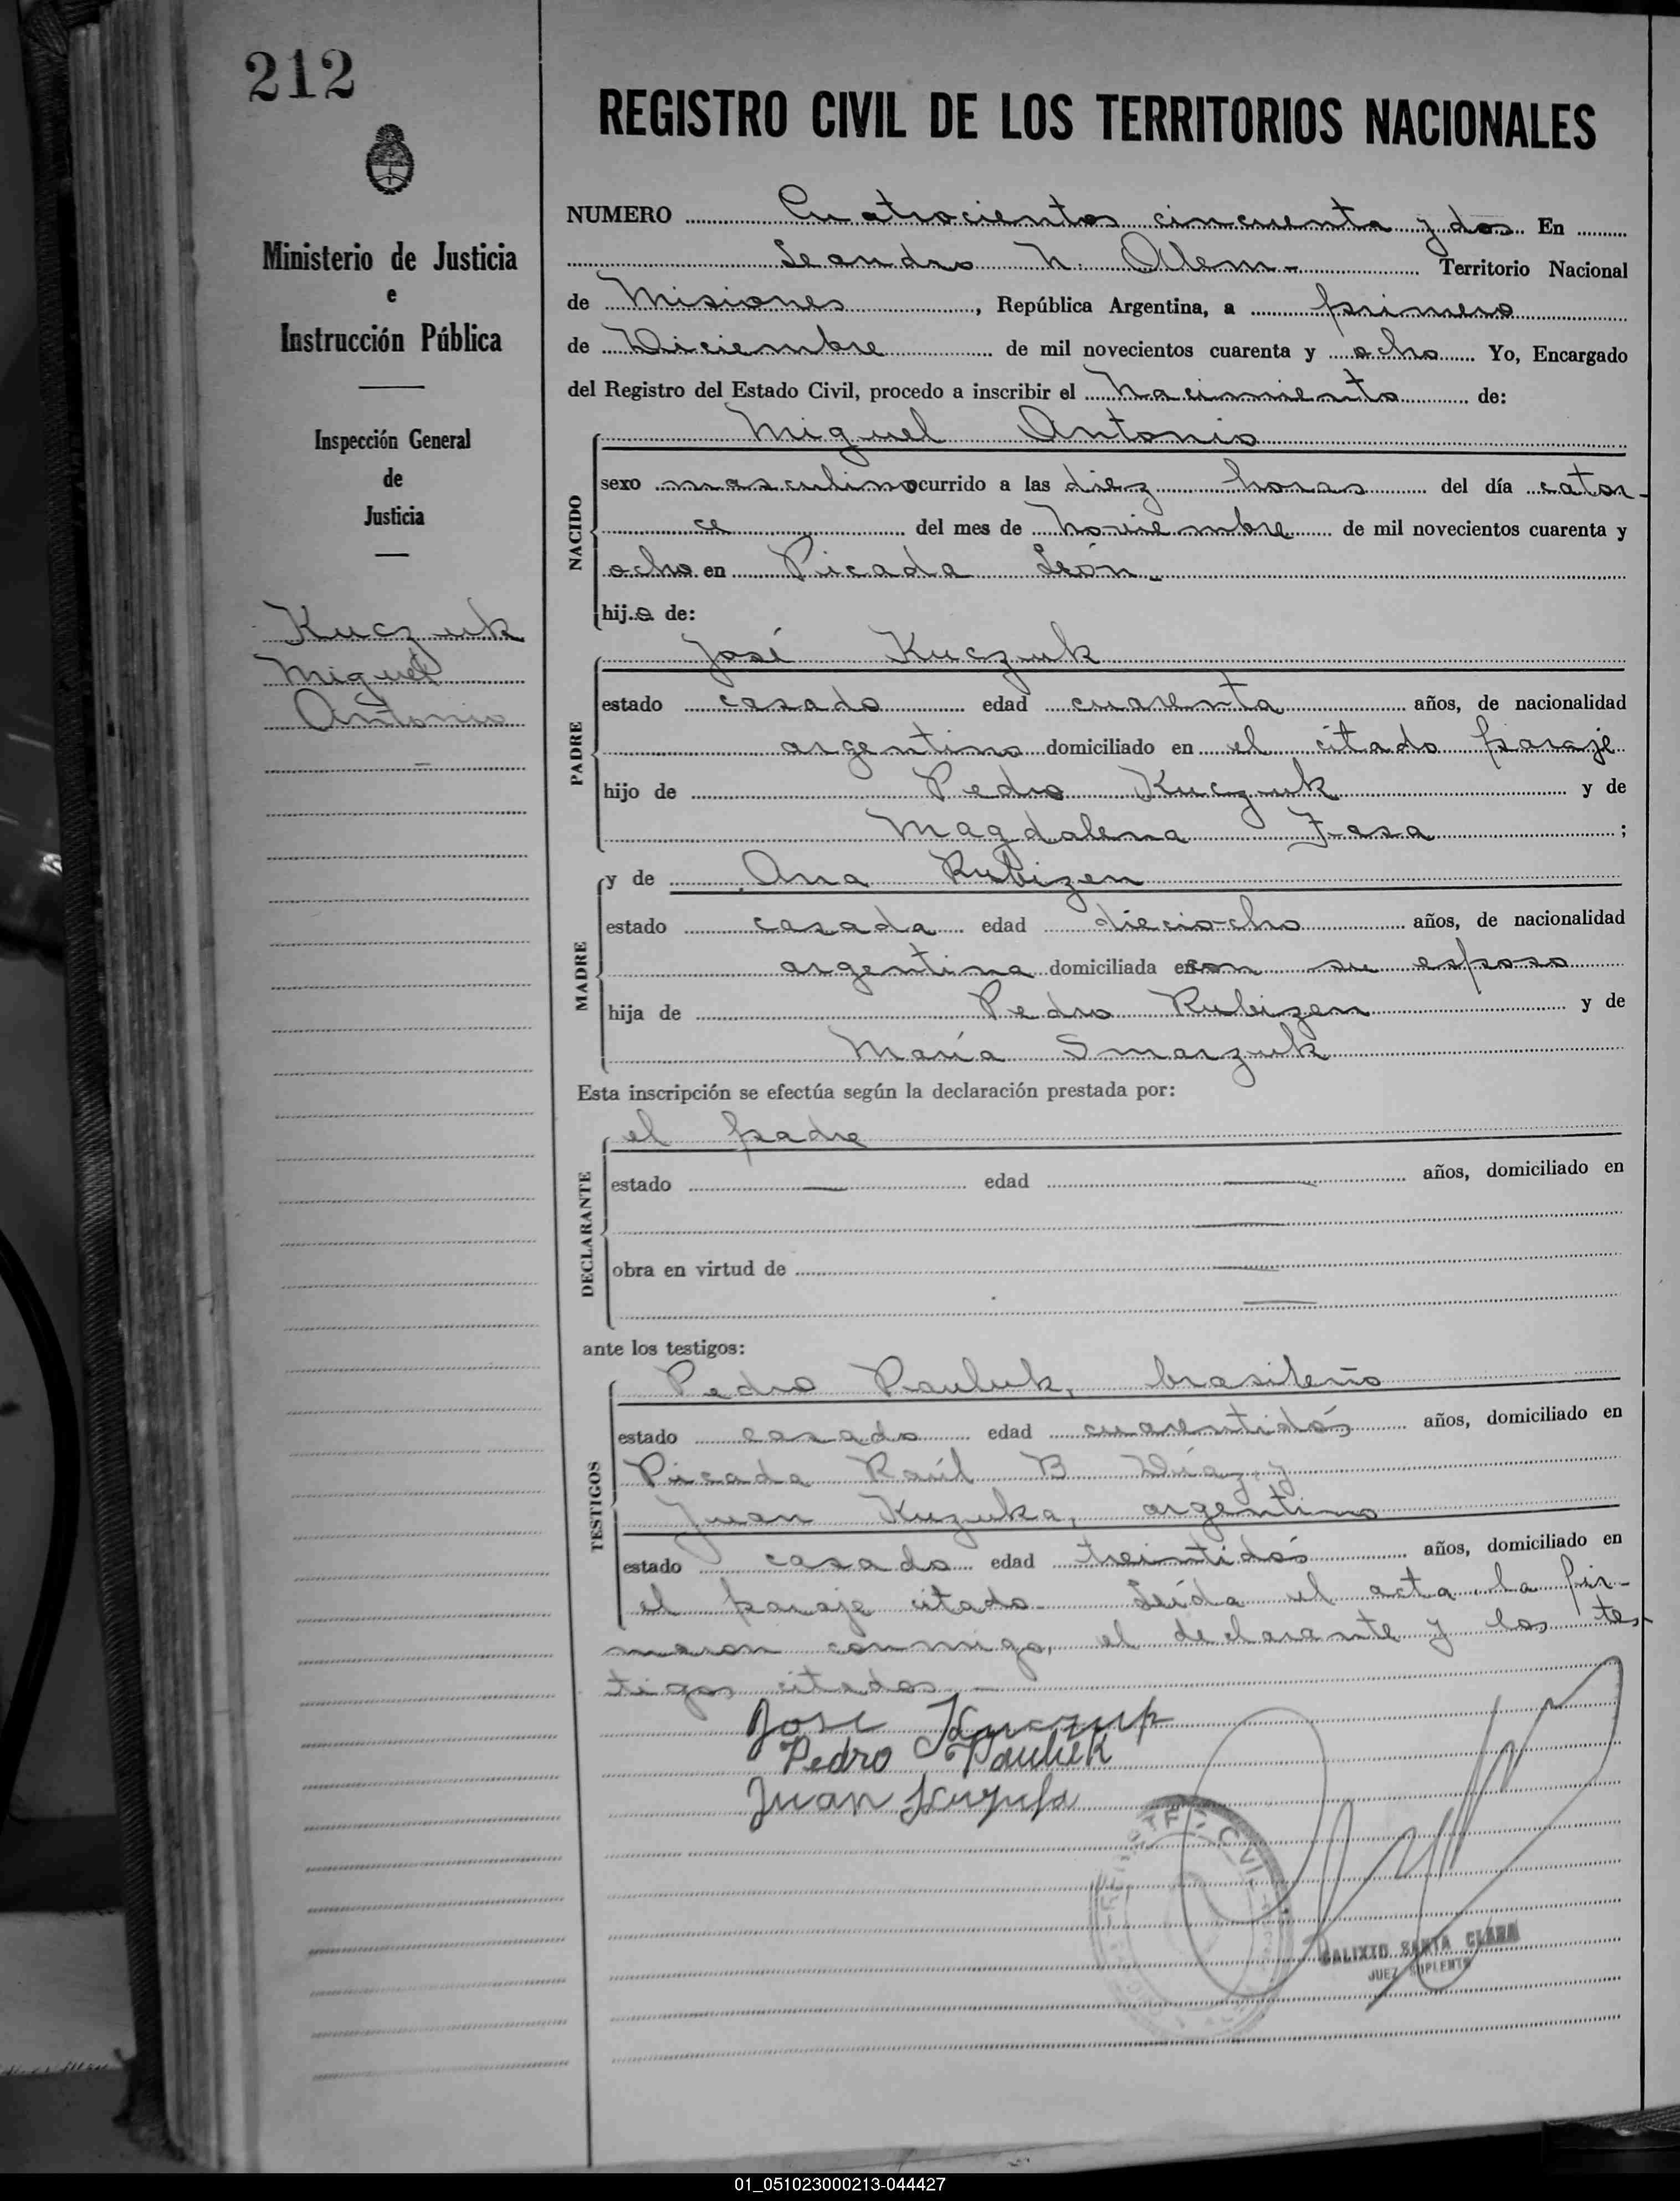 212
REGISTRO CIVIL DE LOS TERRITORIOS NACIONALES
Ministerio de Justicia
e
Instrucción Pública
Inspección General
de
Justicia
Kuczuk
Miguel
Antonio
NUMERO Cuatrocientos cincuenta y dos En
Leandro N. Alem - Territorio Nacional
de Misiones, República Argentina, a primero
de Diciembre de mil novecientos cuarenta y ocho Yo, Encargado
del Registro del Estado Civil, procedo a inscribir el Nacimiento de:
NACIDO
Miguel Antonio
sexo masculino ocurrido a las diez horas del día cator-
ce del mes de Noviembre de mil novecientos cuarenta y
ocho en Picada León -
hijo de:
PADRE
José Kuczuk
estado casado edad cuarenta años, de nacionalidad
argentino domiciliado en el citado paraje
hijo de Pedro Kuczuk y de
Magdalena Fasa ;
MADRE
y de Ana Rubizen
estado casada edad dieciocho años, de nacionalidad
argentina domiciliada en con su esposo
hija de Pedro Rubizen y de
María Smarzuk
Esta inscripción se efectúa según la declaración prestada por:
DECLARANTE
el padre
estado edad años, domiciliado en
obra en virtud de
ante los testigos:
TESTIGOS
Pedro Pauluk, brasileño
estado casado edad cuarentidós años, domiciliado en
Picada Raúl B Díaz, y
Juan Kuzuka, argentino
estado casado edad treintidós años, domiciliado en
el paraje citado. Leída el acta la fir-
maron conmigo, el declarante y los tes-
tigos citados. -
Jose Kuczuk
Pedro Pauluk
Juan
CIVIL
CALIXTO SANTA CLARA
JUEZ SUPLENTE
01_051023000213-044427